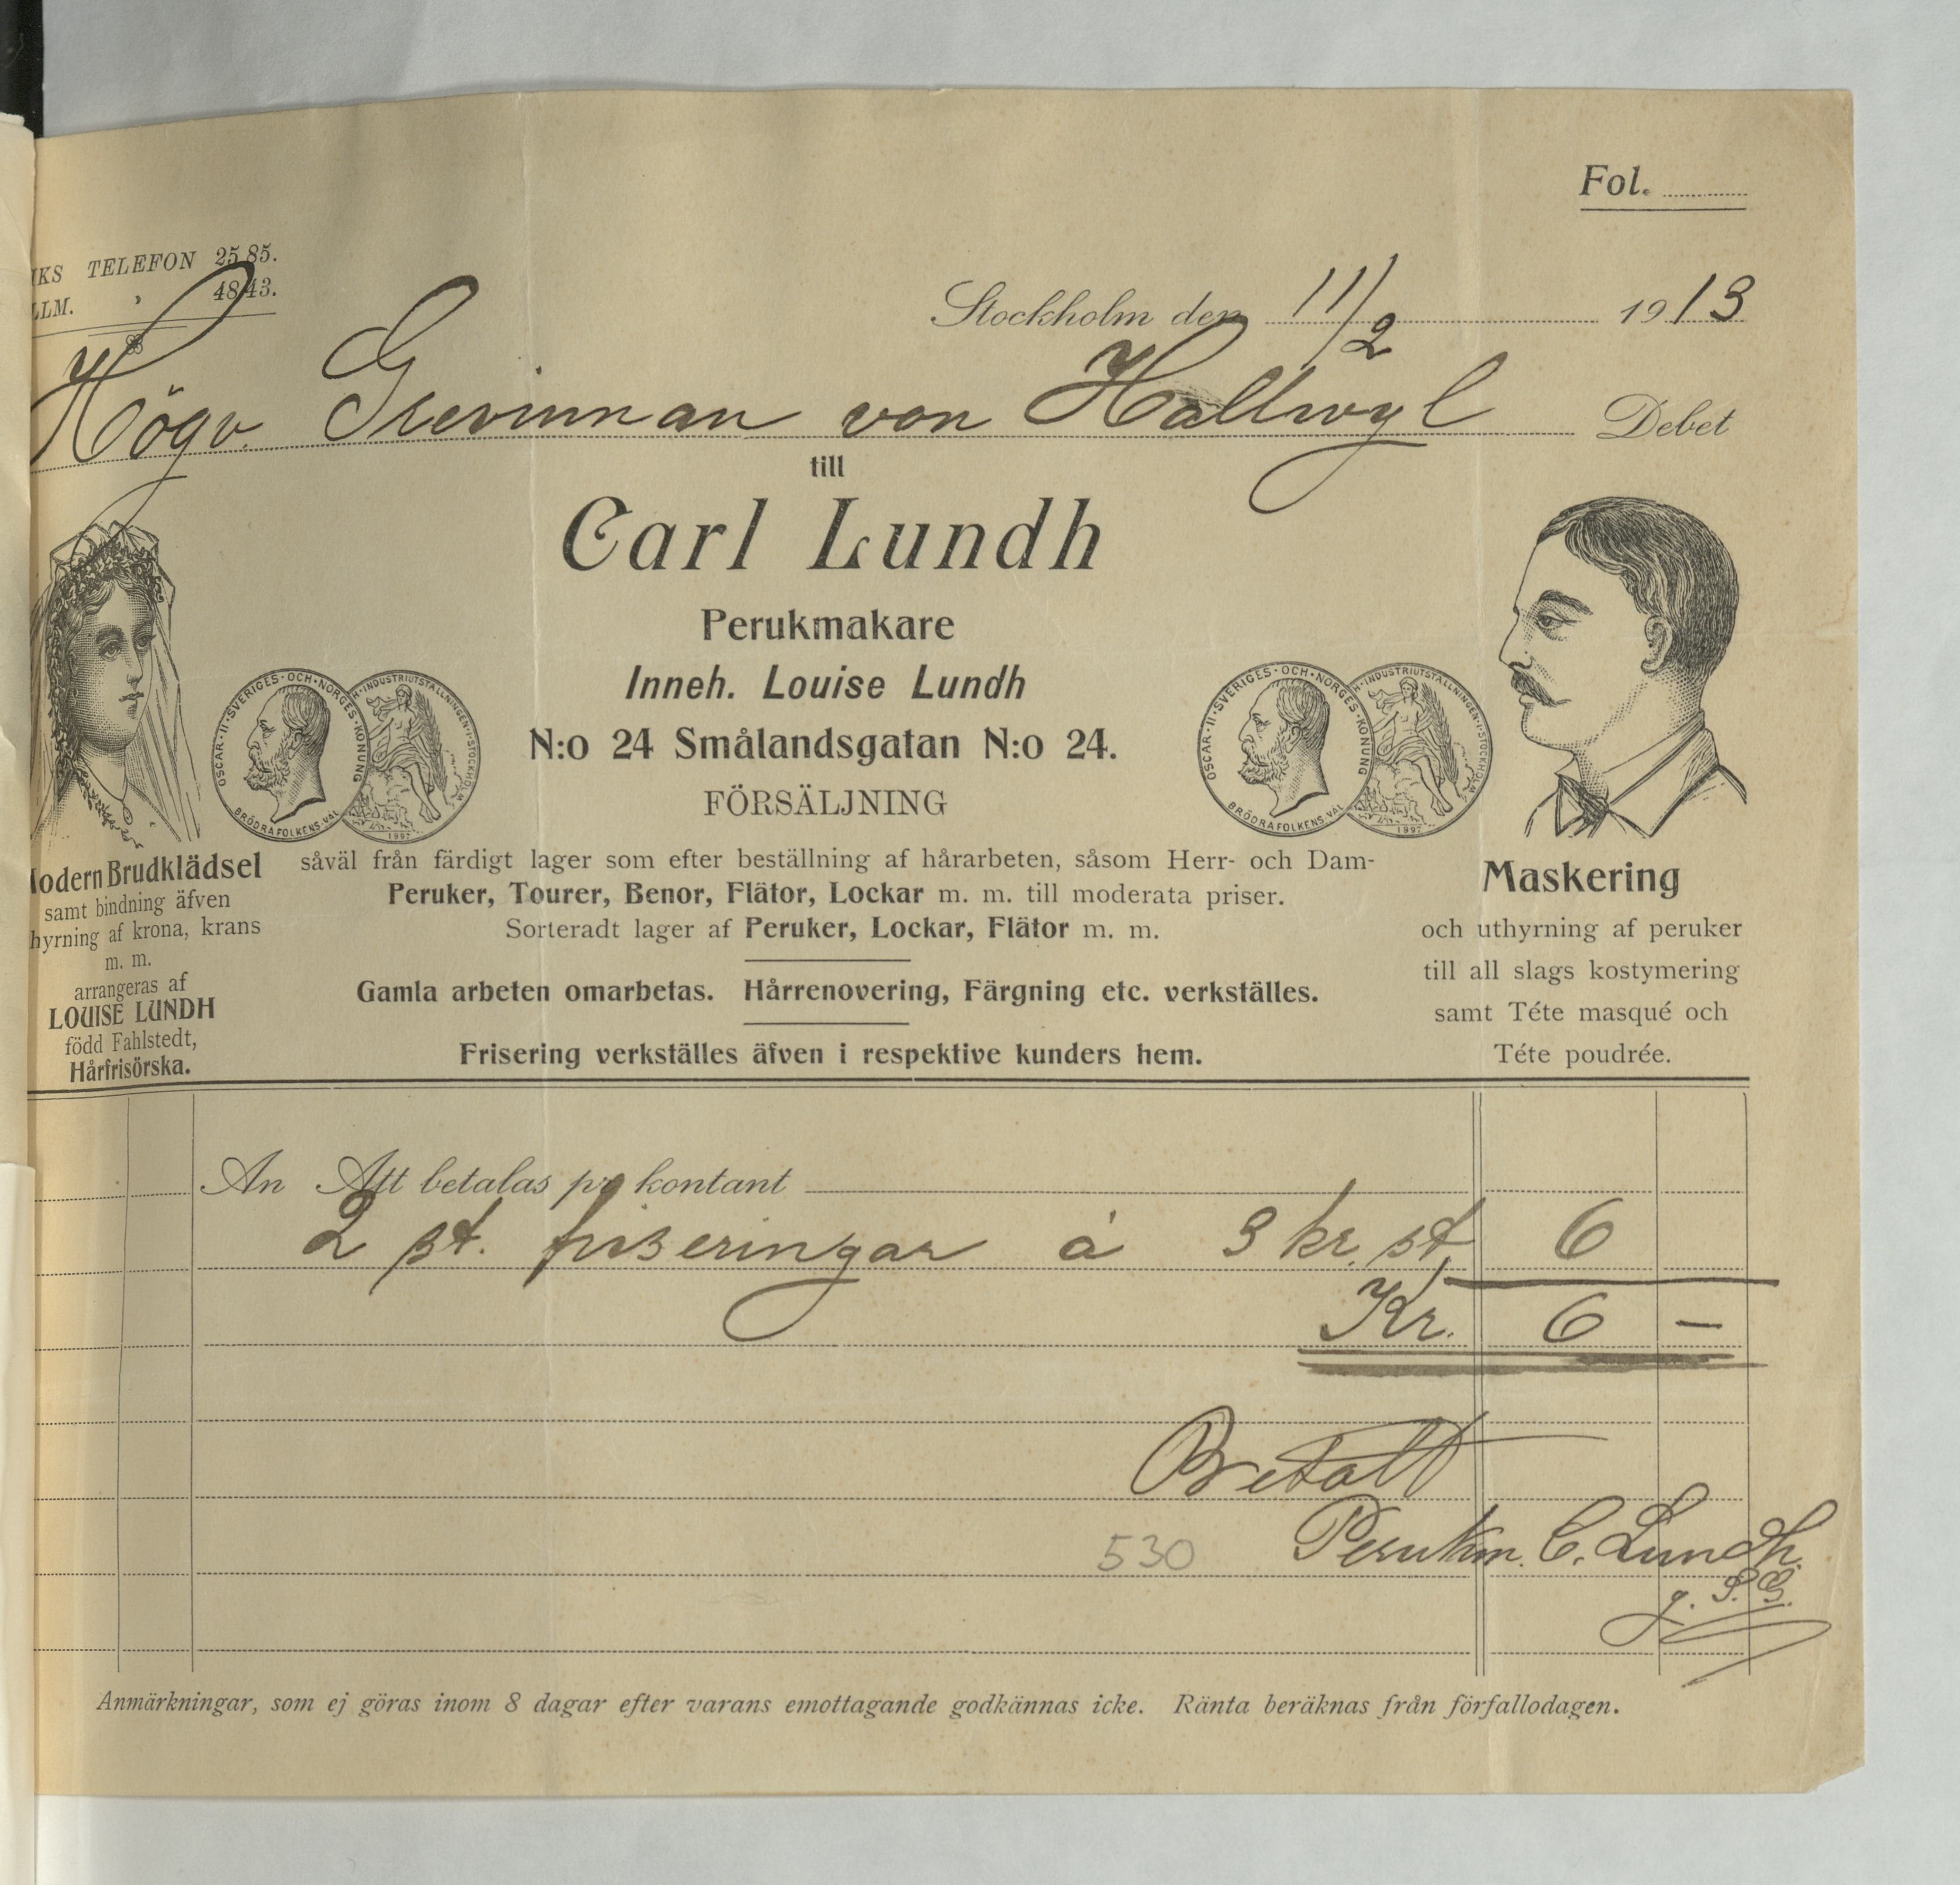 Fol.
TELEFON 2585.
LLM. , 4843.
Stockholm den 11/2 1913
Högv. Grevinnan von Hallwyl Debet
till
Carl Lundh
Perukmakare
Inneh. Louise Lundh
N:o 24 Smålandsgatan N:o 24.
FÖRSÄLJNING
OSCAR·II·SVERIGES·OCH·NORGES·KONUNG
BRÖDRAFOLKENS VÄL
H·INDUSTRIUTSTÄLLNINGEN·I·STOCKHOLM
1897
OSCAR·II·SVERIGES·OCH·NORGES·KONUNG
BRÖDRAFOLKENS VÄL
H·INDUSTRIUTSTÄLLNINGEN·I·STOCKHOLM
1897
såväl från färdigt lager som efter beställning af hårarbeten, såsom Herr- och Dam-
Peruker, Tourer, Benor, Flätor, Lockar m. m. till moderata priser.
Sorteradt lager af Peruker, Lockar, Flätor m. m.
Gamla arbeten omarbetas. Hårrenovering, Färgning etc. verkställes.
Frisering verkställes äfven i respektive kunders hem.
odern Brudklädsel
samt bindning äfven
hyrning af krona, krans
m. m.
arrangeras af
LOUISE LUNDH
född Fahlstedt,
Hårfrisörska.
Maskering
och uthyrning af peruker
till all slags kostymering
samt Téte masqué och
Téte poudrée.
An Att betalas pr kontant
2 st. friseringar à 3 kr. st 6
Kr. 6 –
Betalt
530 Perukm. C. Lundh.
g. S. G.
Anmärkningar, som ej göras inom 8 dagar efter varans emottagande godkännas icke. Ränta beräknas från förfallodagen.